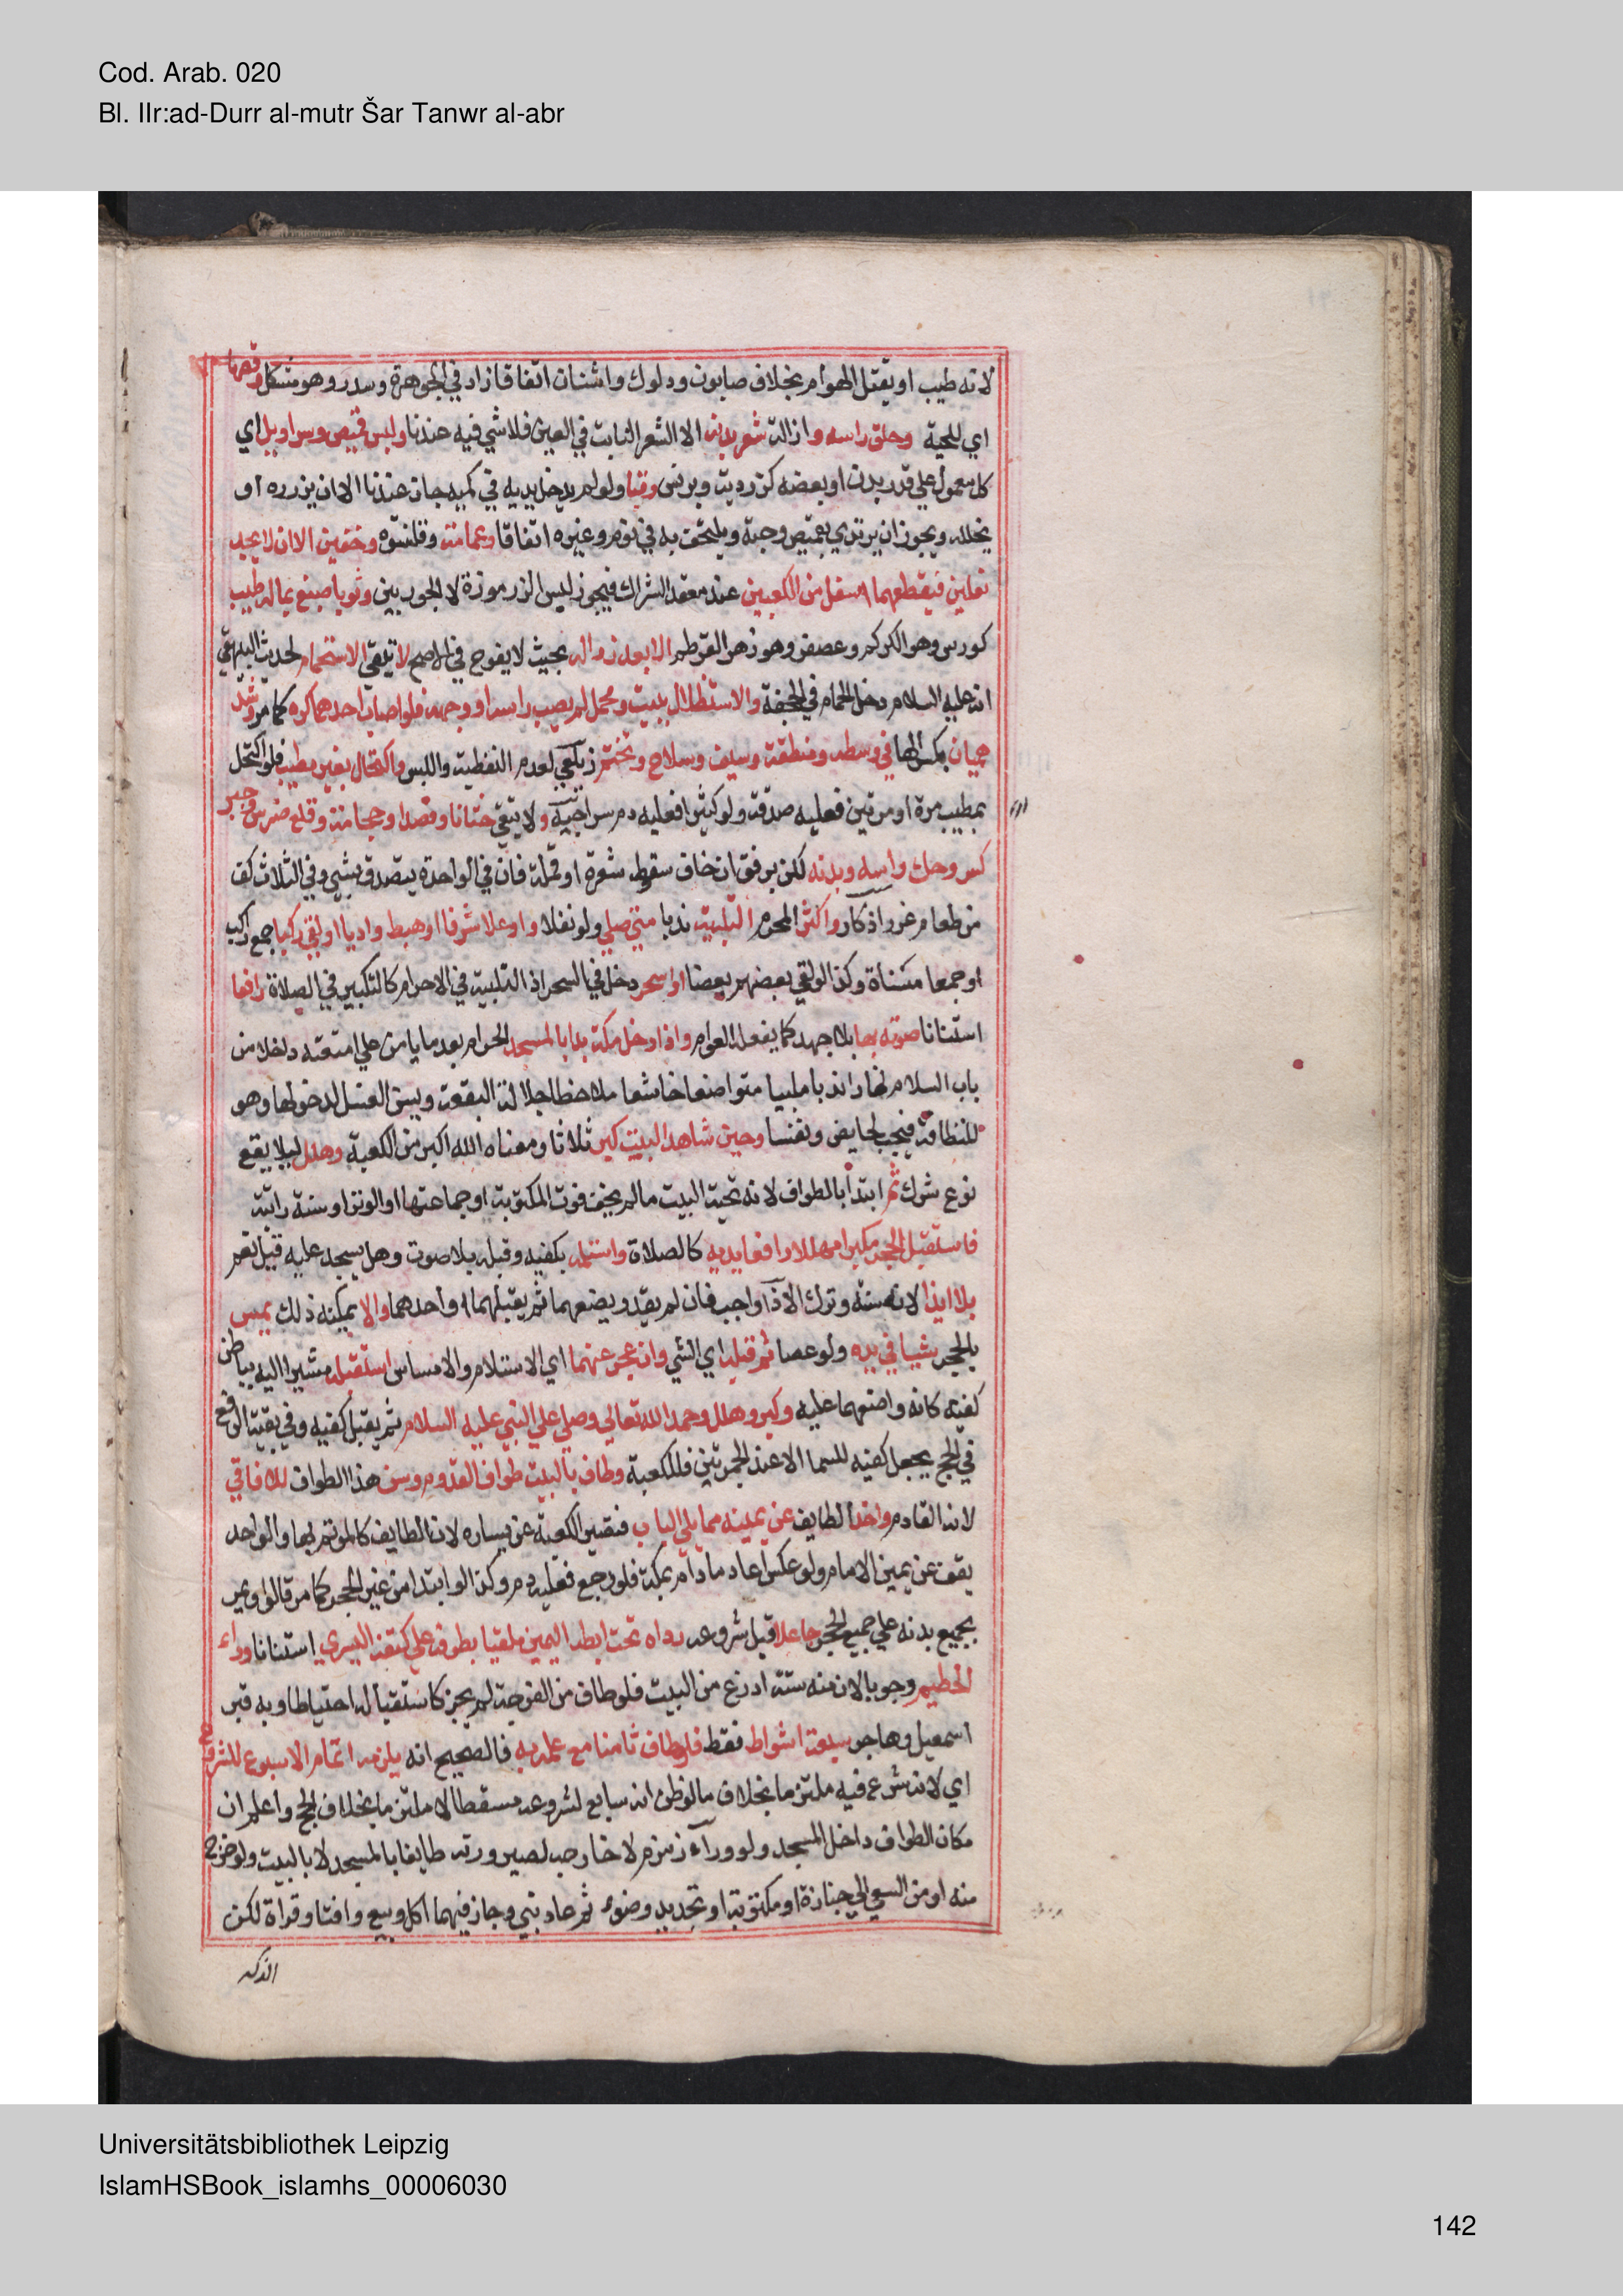 Cod. Arab. 020
Bl. IIr:ad-Durr al-mutr Šar Tanwr al-abr
لانه طيب او يقتل الهوام بخلاف صابون ودلوك واشنان اتفاقا زاد في الجوهرة وسدر وهو مشكل وقصها
اي للحية وحلق راسه وازالة شعر بدنه الا الشعر النابت في العين فلا شي فيه عندنا ولبس قميص وسراويل اي
كل معمول علي قدر بدن او بعضه كزردية وبرنس وقبا ولو لم يدخل يديه في كميه جاز عندنا الا ان يزرره او
يخلله ويجوز ان يرتدي بقميص وجبة ويلتحف به في نوم وغيره اتفاقا وعمامة وقلنسوه وخفين الا ان لا يجد
نعلين فيقطعهما اسفل من الكعبين عند معقد الشراك فيجوز لبس الزرموزة لا الجوربين وثوبا صبغ بما له طيب
كورس وهو الكركم وعصفر وهو زهر القرطم الا بعد زواله بحيث لا يفوح في الاصح لا يتقي الاستحمام لحديث البيهقي
انه عليه السلام دخل الحمام في الجحفة والاستظلال ببيت ومحمل لم يصب راسه او وجهه فلو اصاب احدهما كره كما مر وشد
هميان بكسر الها في وسطه ومنطقة وسيف وسلاح وتختم زيلعي لعدم التغطية واللبس واكتحال بغير مطيب فلو اكتحل
بمطيب مرة او مرتين فعليه صدقة ولو كثيرا فعليه دم سراجية ولا يتقي ختانا وفصدا وحجامة وقلع ضرس وجبر
كسر وحك راسه وبدنه لكن برفق ان خاف سقوط شعرة او قملة فان في الواحدة يتصدق بشي وفي الثلاث كف
من طعام غرر اذكار واكثر المحرم التلبية ندبا متي صلي ولو نفلا او علا شرفا او هبط واديا او لقي ركبا جمع راكب
او جمعا مشاة وكذا لو لقي بعضهم بعضا او اسحر دخل في السحر اذ التلبية في الاحرام كالتكبير في الصلاة رافعا
استنانا صوته بها بلا جهد كما يفعله العوام واذا دخل مكة بدا بالمسجد الحرام بعد ما يامن علي امتعته داخلا من
باب السلام نهارا ندبا ملبيا متواضعا خاشعا ملاحظا جلالة البقعة ويسن الغسل لدخولها وهو
للنظافة فيجب لحايض ونفسا وحين شاهد البيت كبر ثلاثا ومعناه الله اكبر من الكعبة وهلل ليلا يقع
نوع شرك ثم ابتدا بالطواف لانه تحية البيت ما لم يخف فوت المكتوبة او جماعتها او الوتر او سنة راتبة
فاستقبل الحجر مكبرا مهللا رافعا يديه كالصلاة واستلمه بكفيه وقبله بلا صوت وهل يسجد عليه قيل نعم
بلا ايذا لانه سنة وترك الاذا واجب فان لم يقدر يضعهما ثم يقبلهما او احدهما والا يمكنه ذلك يمس
بالحجر شيا في يده ولو عصا ثم قبله اي الشي وان عجز عنهما اي الاستلام والامساس استقبله مشيرا اليه بباطن
كفيه كانه واضعهما عليه وكبر وهلل وحمد الله تعالي وصلي علي النبي عليه السلام ثم يقبل كفيه وفي بقية الرفع
في الحج يجعل كفيه للسما الا عند الجمرتين فللكعبة وطاف بالبيت طواف القدوم وسن هذا الطواف للافاقي
لانه القادم واخذ الطايف عن يمينه مما يلي الباب فتصير الكعبة عن يساره لان الطايف كالموتم بها والواحد
يقف عن يمين الامام ولو عكس اعاد ما دام بمكة فلو رجع فعليه دم وكذا لو ابتدا من غير الحجر كما مر قالوا ويمر
بجميع بدنه علي جميع الحجر جاعلا قبل شروعه رداه تحت ابطه اليمين ملقيا بطرفه علي كتفه اليسري استنانا وراء
الحطيم وجوبا لان منه ستة اذرع من البيت فلو طاف من الفرجة لم يجز كاستقباله احتياطا وبه قبر
اسمعيل وهاجر سبعة اشواط فقط فلو طاف ثامنا مع علمه به فالصحيح انه يلزمه اتمام الاسبوع للشروع
اي لانه شرع فيه ملتزما بخلاف ما لو ظن انه سابع لشروعه مسقطا لا ملتزما بخلاف الحج واعلم ان
مكان الطواف داخل المسجد ولو وراء زمزم لا خارجه لصيرورته طايفا بالمسجد لا بالبيت ولو خرج
منه او من السعي الي جنازة او مكتوبة او تجديد وضوء ثم عاد بني وجاز فيهما اكل وبيع وافتا وقراة لكن
الذكر
Universitätsbibliothek Leipzig
IslamHSBook_islamhs_00006030
142